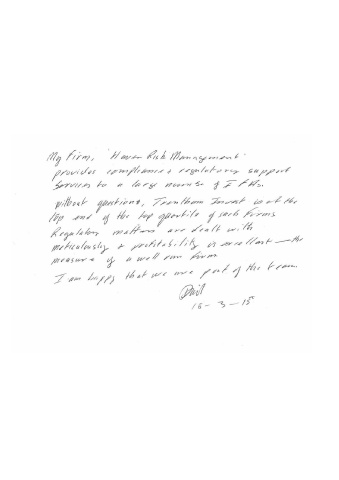 My Firm, 'Haven Risk Management'
provides compliance & regulatory support
services to a large number of IFAs.
without question, Trentham Invest is at the
top end of the top quartile of such firms
Regulatory matters are dealt with
meticulously & profitability is excellent — the
measure of a well run firm
I am happy that we are part of the team.
15 - 3 - 15